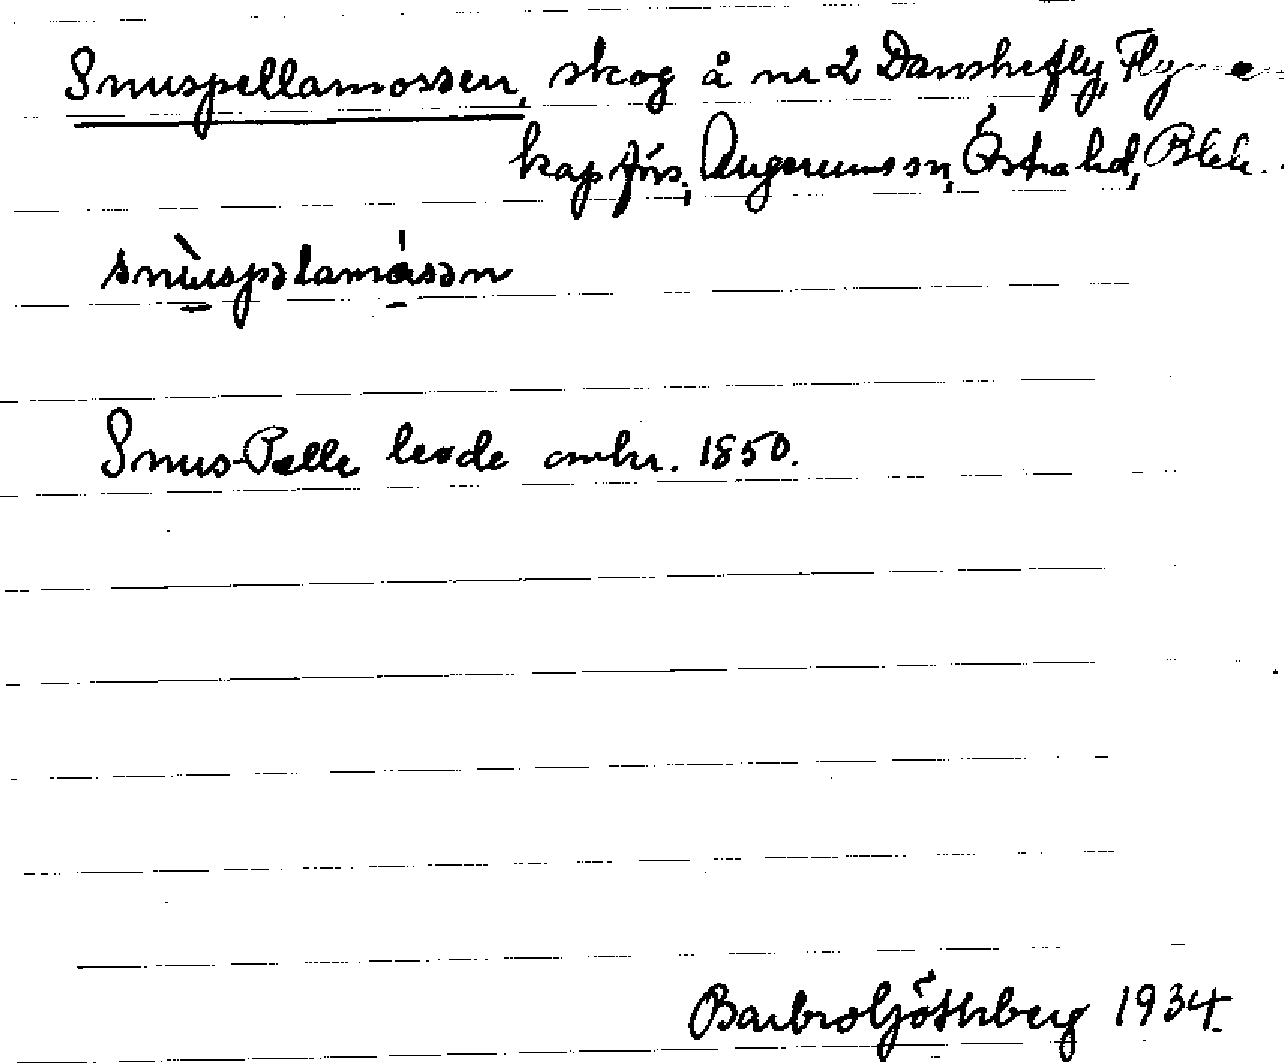 Snuspellamossen, skog å nr 2 Danskefly, Flymen
kap förs., Augerums sn, Östra hd, Blek.
snùspəlamásən
Snus-Pelle levde omkr. 1850.
Barbro Göthberg 1934.